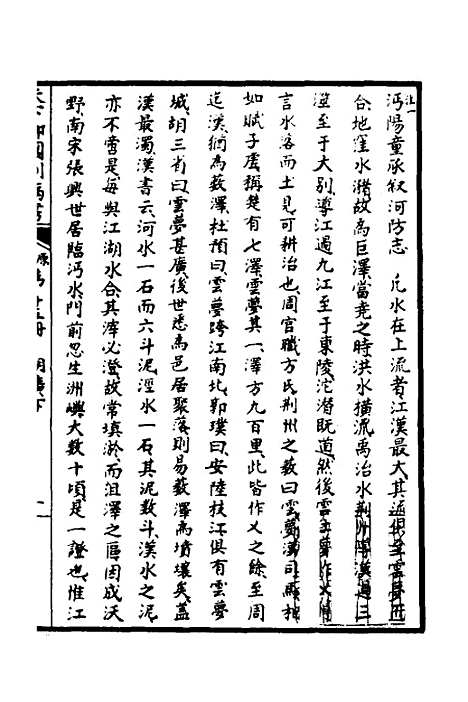 注一
沔陽童承叙河防志 凡水在上流者江漢最大其
合地窪水豬故為巨澤當堯之時洪水橫流禹治水荊州導漢過三
澨至于大别導江過九江至于東陵沱潛既道然後雲土夢作乂傳
言水落而土見可耕治也周官職方氏荊州之藪曰雲夢漢司馬相
如賦子虛稱楚有七澤雲夢其一澤方九百里此皆作乂之餘至周
迄漢猶為藪澤杜預曰雲夢跨江南北郭璞曰安陸枝江俱有雲夢
城胡三省曰雲夢甚廣後世悉為邑居聚落則易藪澤為墳壤矣蓋
漢最濁漢書云河水一石而六斗泥涇水一石其泥數斗漢水之泥
亦不啻是每與江湖水合其滓必澄故常填淤而沮澤之區因成沃
野南宋張興世居臨沔水門前忽生洲嶼大數十頃是一證也惟江
天下郡國利病書
原第十五冊 湖廣下